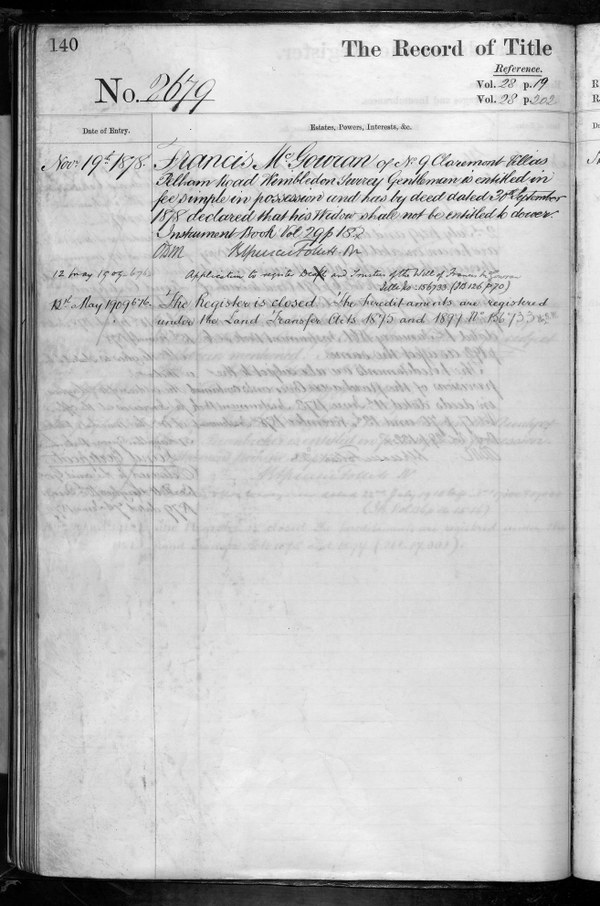 140
The Record of Title
Reference.
No. 2679
Vol. 28 p. 19
Vol. 28 p. 202
Date of Entry.
Estates, Powers, Interests, &c.
Novr 19th 1878. Francis McGowan of No 9 Claremont Villas
Pelham Road Wimbledon Surrey Gentleman is entitled in
fee simple in possession and has by deed dated 30th September
1878 declared that his Widow shall not be entitled to dower
Instrument Book Vol 29 p 182
12 May 1909 Application to register Death and of the Will of Francis McGowan
Title No 136733
12th May 1909 The Register is closed. The hereditaments are registered
under the Land Transfer Acts 1875 and 1897 No 136733